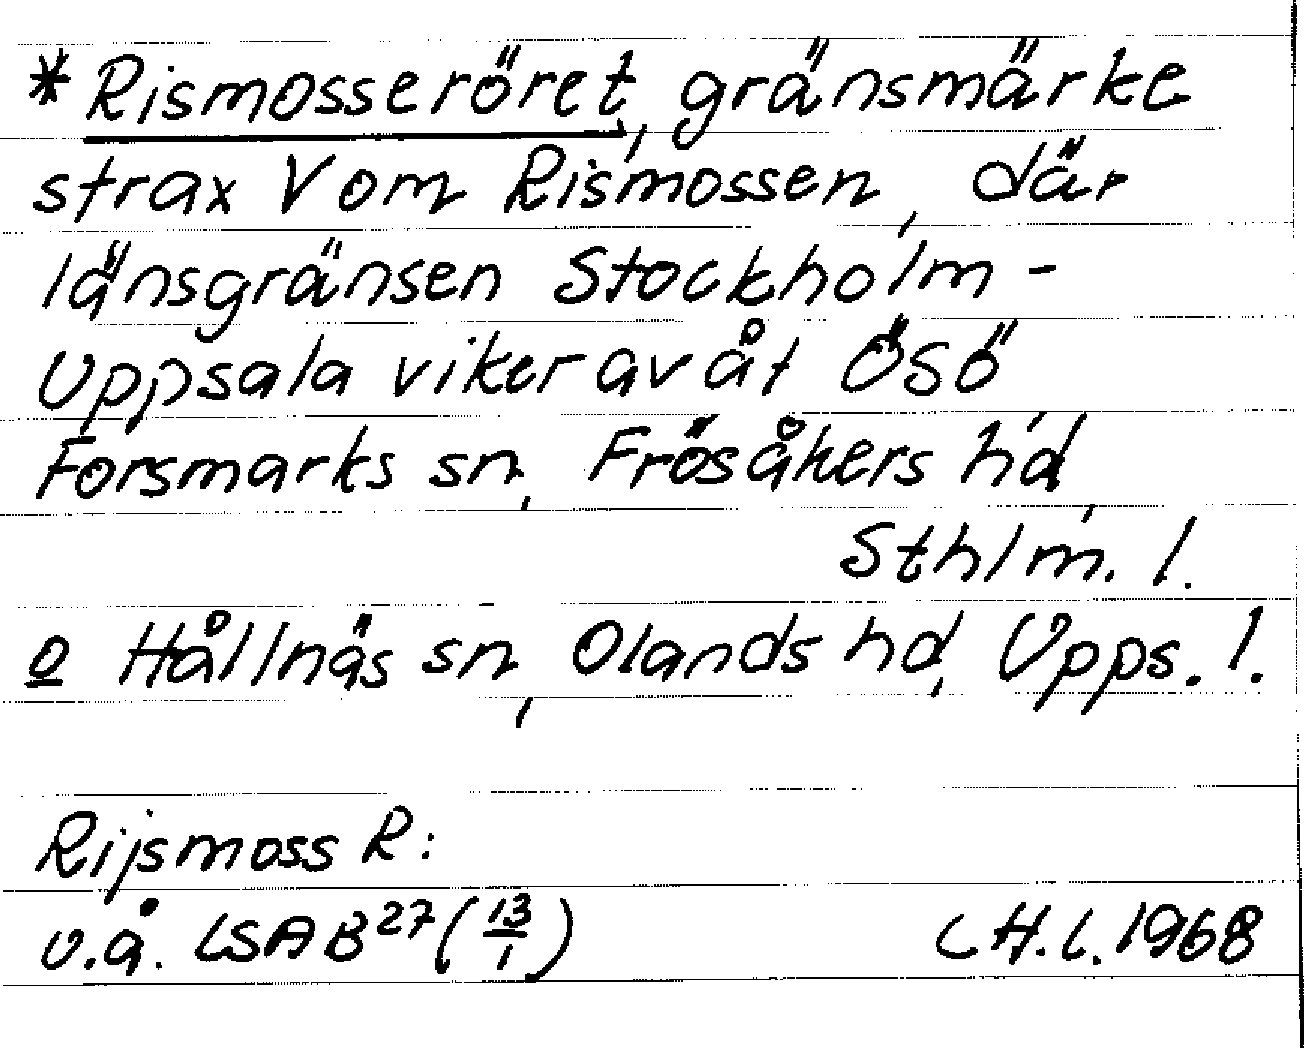 * Rismosseröret, gränsmärke
strax V om Rismossen, där
länsgränsen Stockholm -
Uppsala viker av åt ÖSÖ
Forsmarks sn, Frösåkers hd,
Sthlm. l.
o Hållnäs sn, Olands hd, Upps. l.
Rijsmoss R:
u.å. LSA B27 (13/1)
C.H.L. 1968